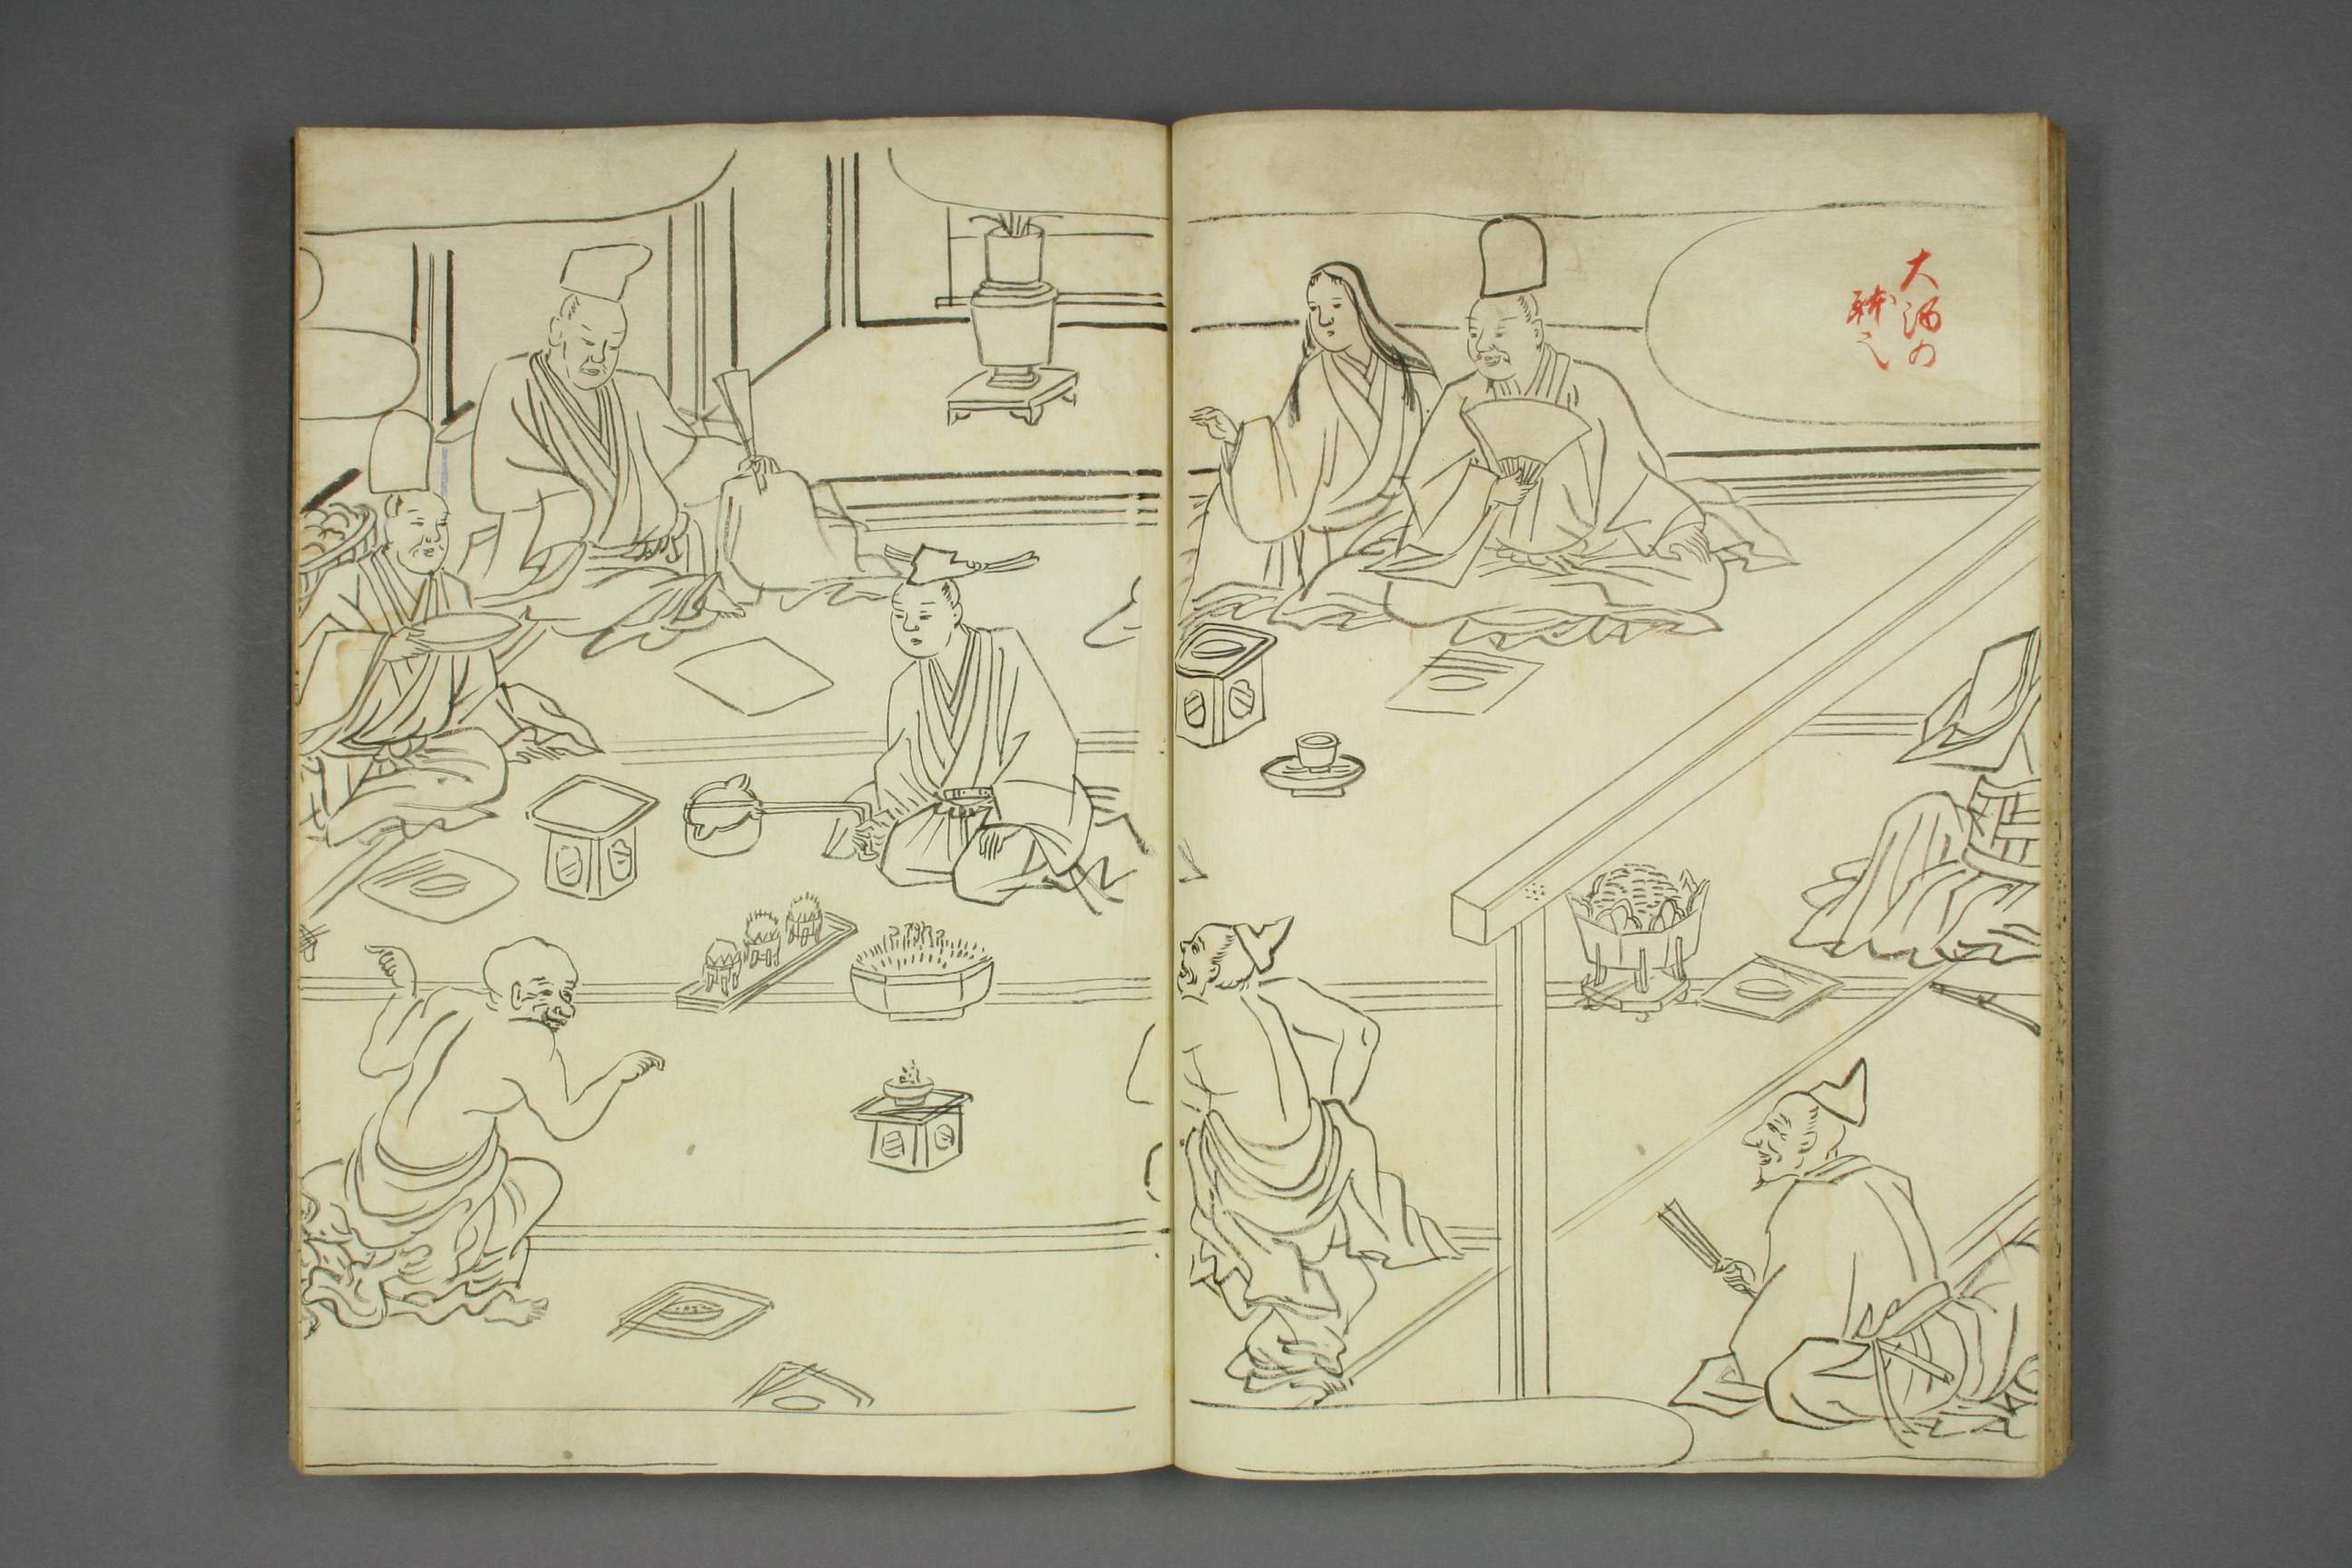 大酒の
躰也